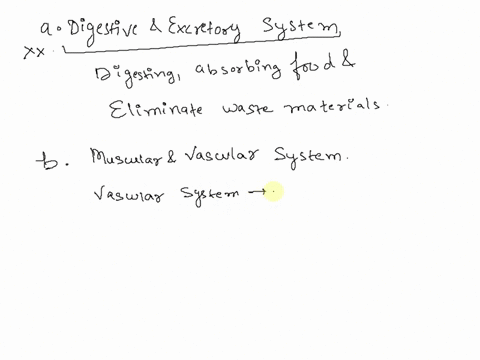 a. Digestive & Excretory System,
xx.
Digesting, absorbing food &
Eliminate waste materials.
b. Muscular & Vascular System.
Vascular System →